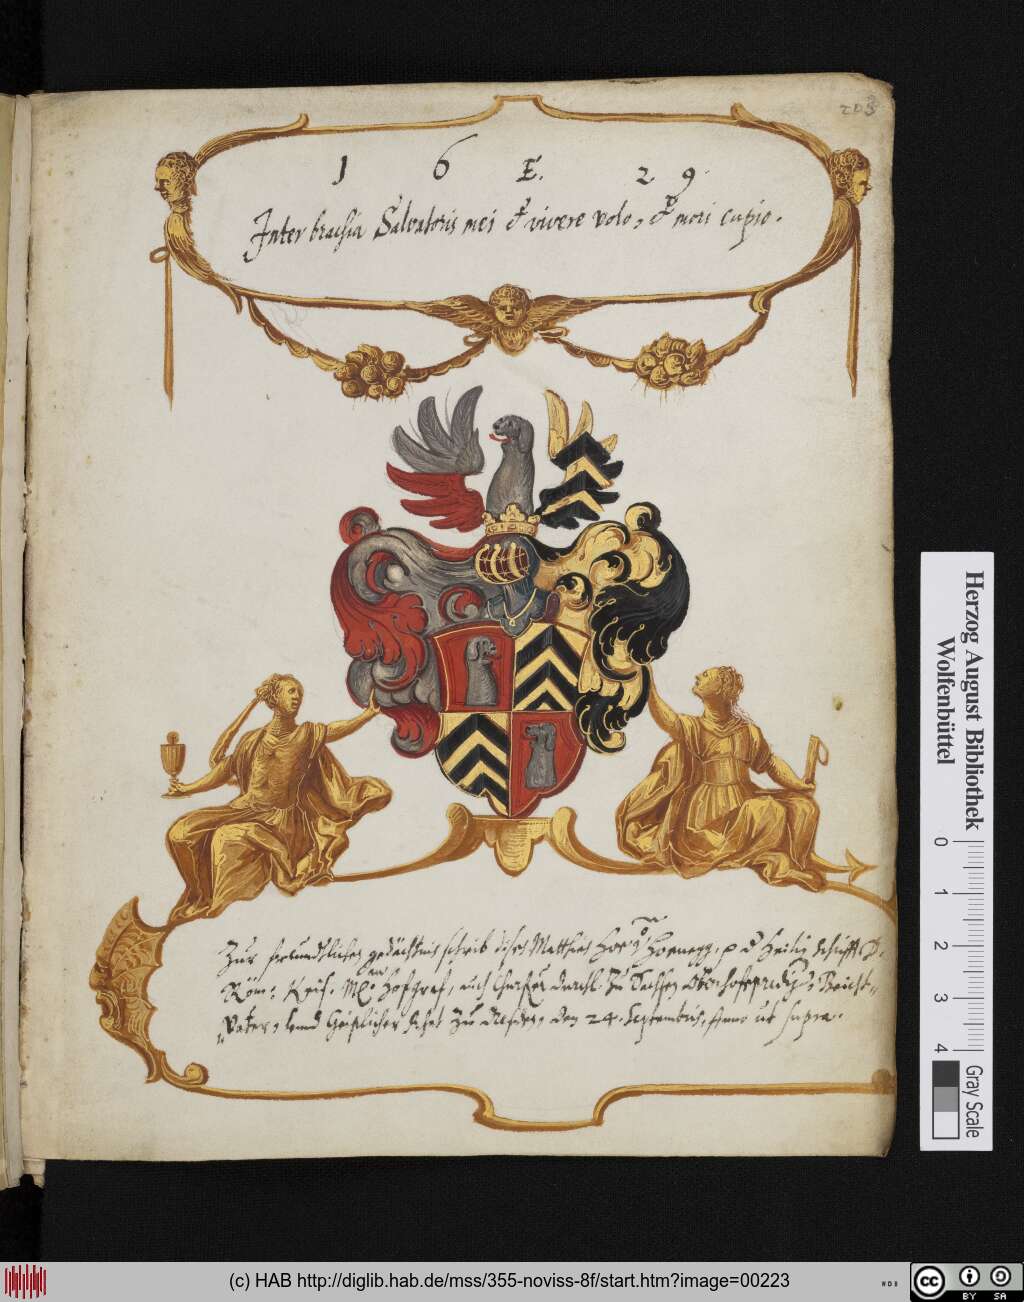 203
1 6 E. 2 9.
Inter brachia Salvatoris mei & vivere volo, & mori cupio.
Zur freundtlicher gedächtnis schrieb dises Matthias Hoe von Hoenegg, der Heilig Schrifft D.
Röm. Keis. Hofgraf, auch Churf. durchl. zu Sachsen Oberhofeprediger, Beicht„
„Vater, vnnd Geistlicher Raht zu Dresden, den 24. Septembris, Anno ut supra.
Herzog August Bibliothek
Wolfenbüttel
0 1 2 3 4
Gray Scale
(c) HAB http://diglib.hab.de/mss/355-noviss-8f/start.htm?image=00223
WDB
cc BY SA